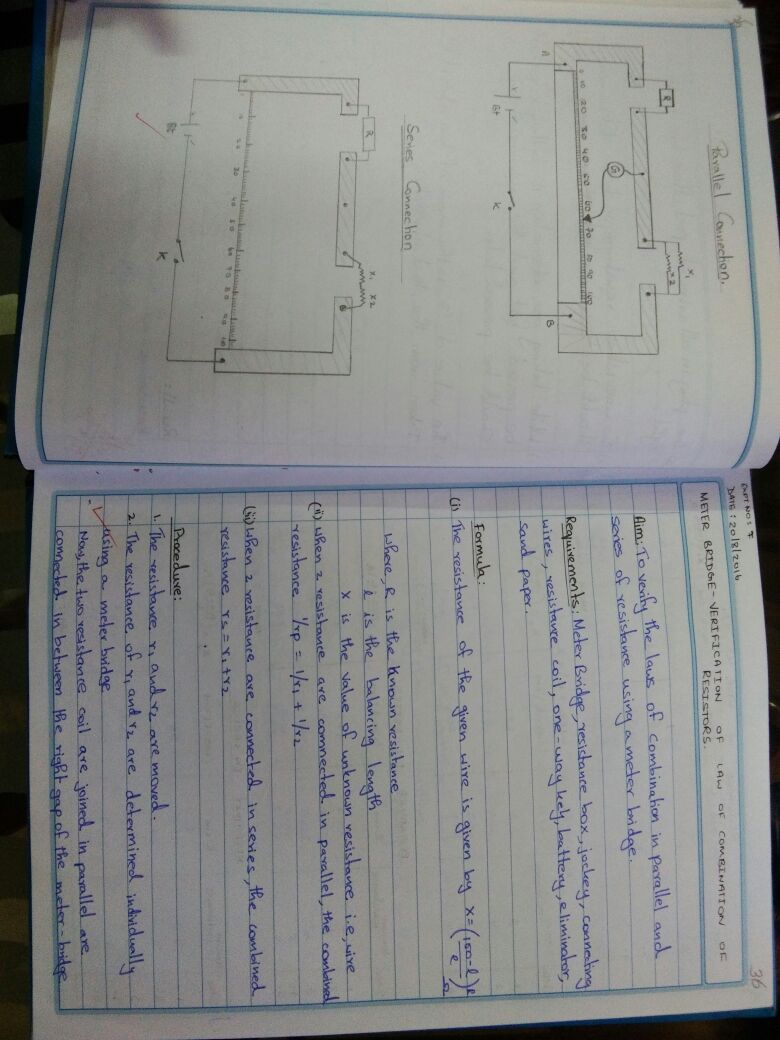 Parallel Connection.
R
G
X1
X2
A
0 10 20 30 40 50 60 70 80 90 100
B
Bt
K
Series Connection
R
X1 X2
0 10 20 30 40 50 60 70 80 90
Bt
K
36
EXPT NO: 7
DATE: 20/8/2016
METER BRIDGE-VERIFICATION OF LAW OF COMBINATION OF
RESISTORS.
Aim: To verify the laws of combination in parallel and
series of resistance using a meter bridge.
Requirements: Meter Bridge, resistance box, jockey, connecting
wires, resistance coil, one-way key, battery, eliminator,
sand paper.
Formula:
(i) The resistance of the given wire is given by X = (100-l / l) R Ω
where, R is the known resistance
l is the balancing length
X is the value of unknown resistance i.e, wire
(ii) When 2 resistance are connected in parallel, the combined
resistance 1/rp = 1/r1 + 1/r2
(iii) When 2 resistance are connected in series, the combined
resistance rs = r1 + r2
Procedure:
1. The resistance r1 and r2 are moved.
2. The resistance of r1 and r2 are determined individually
using a meter bridge
Now, the two resistance coil are joined in parallel are
connected in between the right gap of the meter-bridge